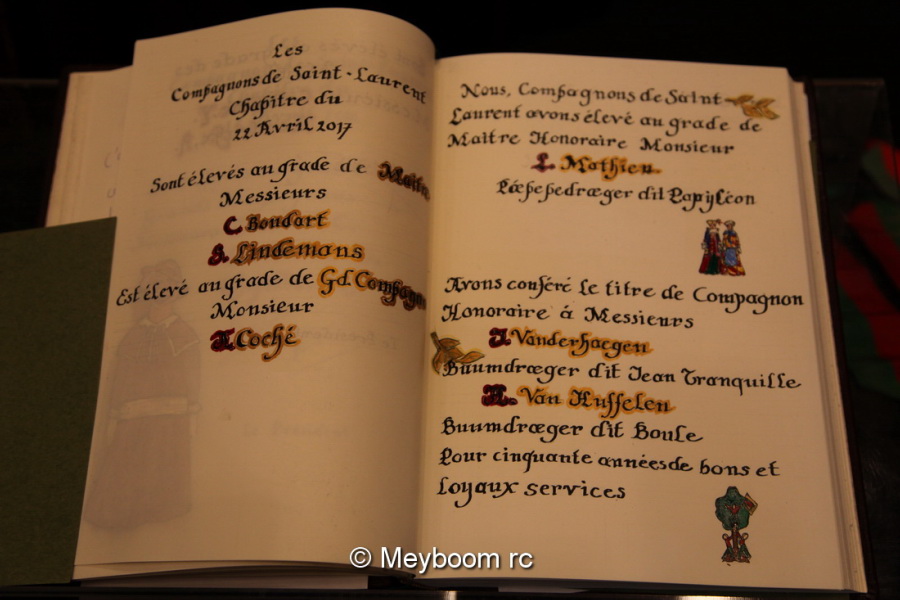 Les
Compagnons de Saint-Laurent
Chapitre du
22 Avril 2017
Sont élevés au grade de Maître
Messieurs
C. Boudart
S. Lindemans
Est élevé au grade de Gd. Compagnon
Monsieur
Coché
Nous, Compagnons de Saint-
Laurent avons élevé au grade de
Maître Honoraire Monsieur
L. Mathieu
Pœpedrœger dit Papyléon
Avons conféré le titre de Compagnon
Honoraire à Messieurs
J. Vanderhaegen
Buumdrœger dit Jean Tranquille
Van Huffelen
Buumdrœger dit Boule
Pour cinquante années de bons et
Loyaux services
© Meyboom rc